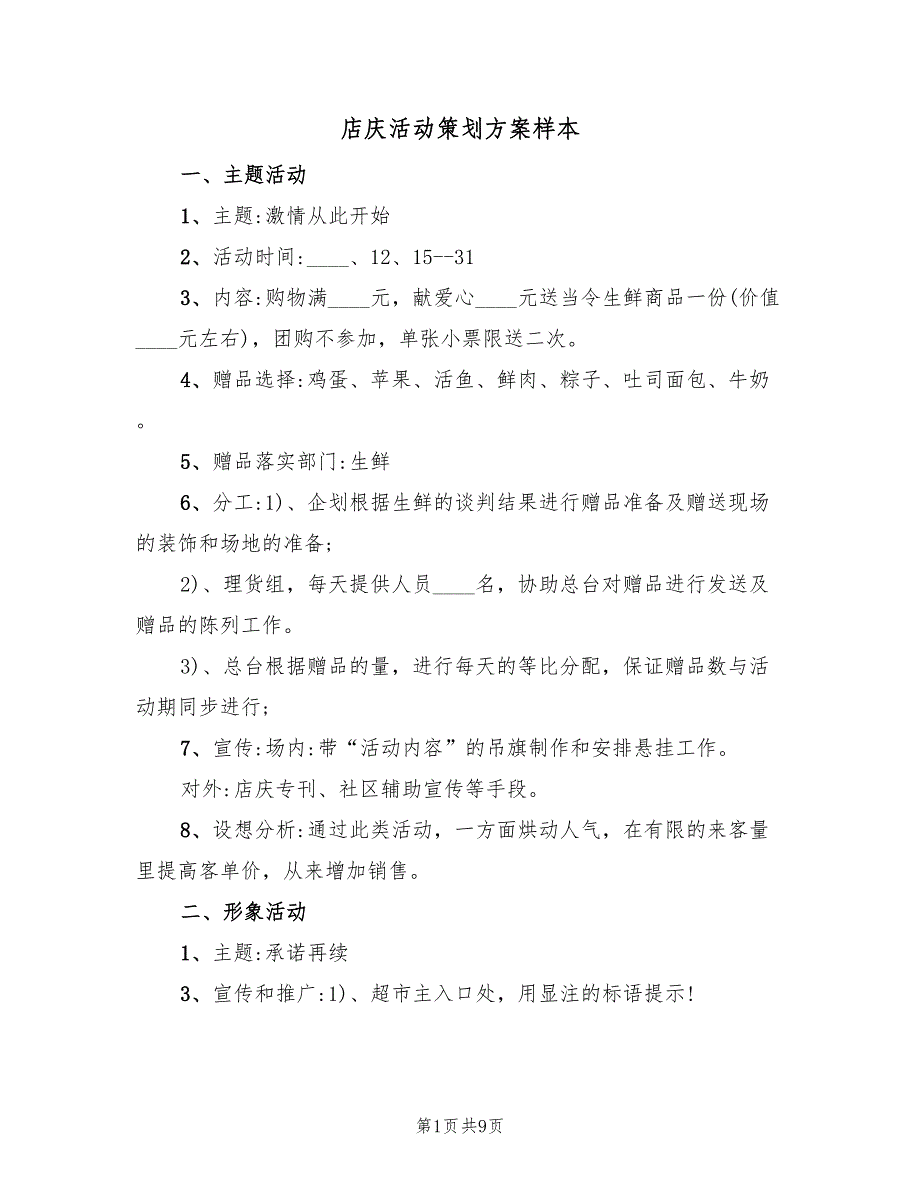 店庆活动策划方案样本
一、主题活动
1、主题:激情从此开始
2、活动时间:____、12、15--31
3、内容:购物满____元，献爱心____元送当令生鲜商品一份(价值
____元左右)，团购不参加，单张小票限送二次。
4、赠品选择:鸡蛋、苹果、活鱼、鲜肉、粽子、吐司面包、牛奶
。
5、赠品落实部门:生鲜
6、分工:1)、企划根据生鲜的谈判结果进行赠品准备及赠送现场
的装饰和场地的准备;
2)、理货组，每天提供人员____名，协助总台对赠品进行发送及
赠品的陈列工作。
3)、总台根据赠品的量，进行每天的等比分配，保证赠品数与活
动期同步进行;
7、宣传:场内:带“活动内容”的吊旗制作和安排悬挂工作。
对外:店庆专刊、社区辅助宣传等手段。
8、设想分析:通过此类活动，一方面烘动人气，在有限的来客量
里提高客单价，从来增加销售。
二、形象活动
1、主题:承诺再续
3、宣传和推广:1)、超市主入口处，用显注的标语提示!
第1页共9页